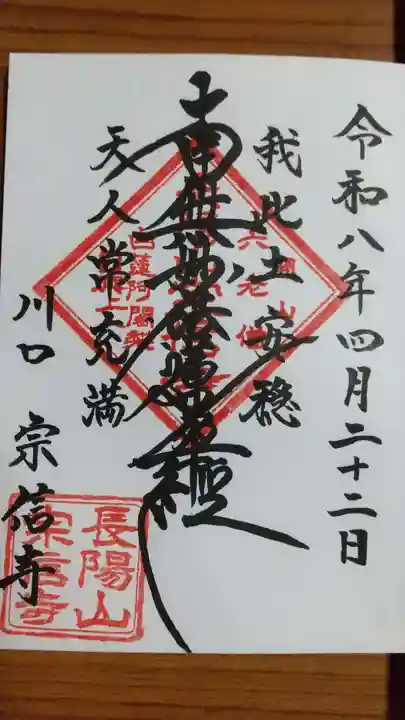 令和八年四月二十二日
我此土安穏
南無妙法蓮華経
天人常充満
川口 宗信寺
長陽山
宗信寺